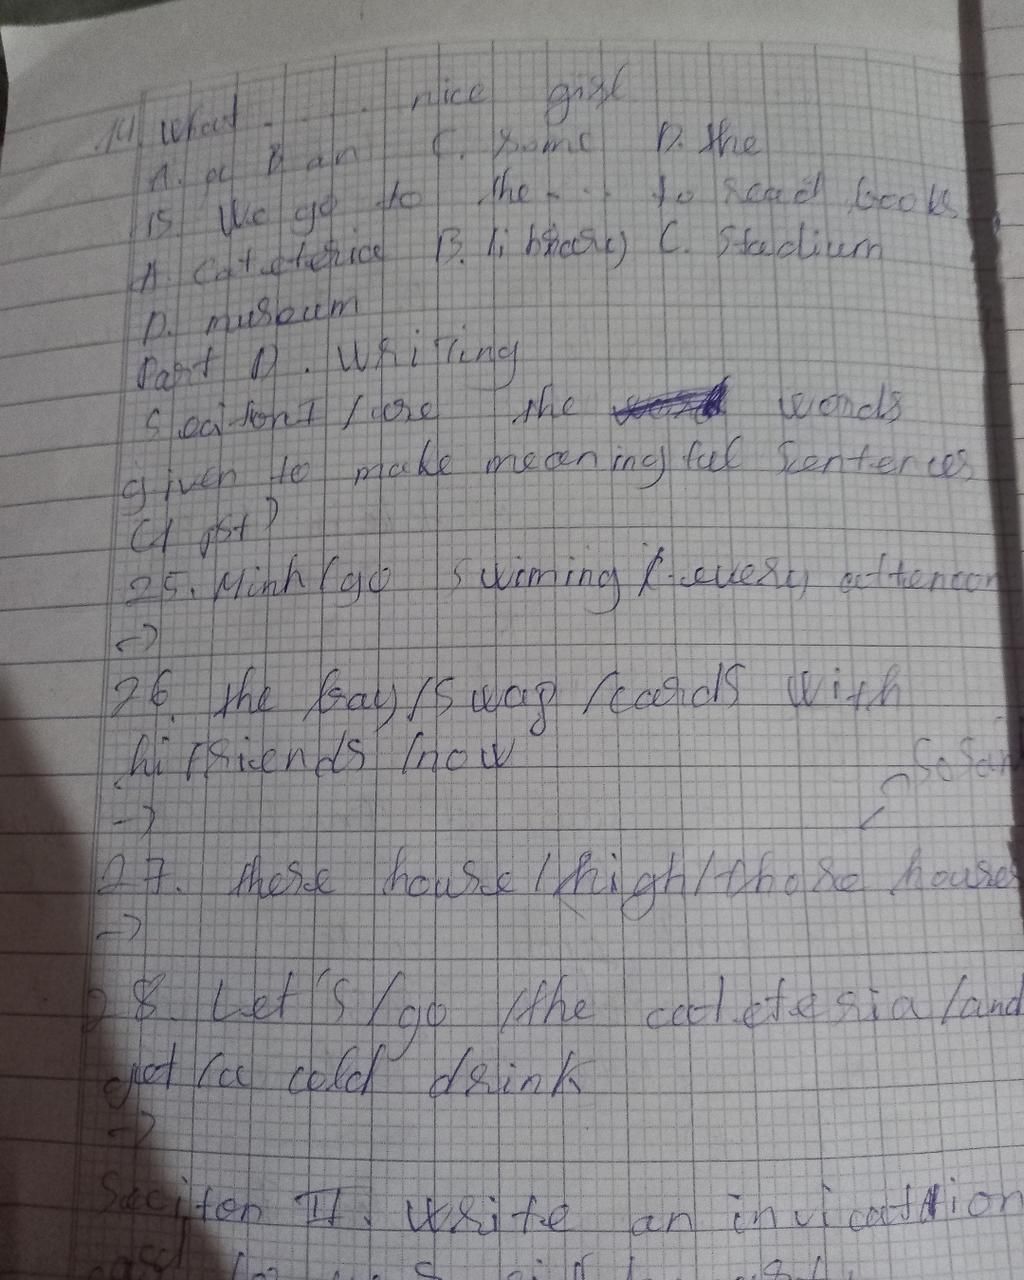 14. What . . . nice girl
A. a B an C. some D. the
15. We go to the . . . to read books
A. cateteria B. library C. Stadium
D. museum
Part D. Writing
the words
given to make meaningful sentences
(1 pst)
25. Minh / go swiming / every afternoon
->
26. the bay / swap / cards with
hi friends / now
->
27. these house / high / those houses
->
28. Let's / go / the cafeteria / and
get / a cold drink
->
II. Write an